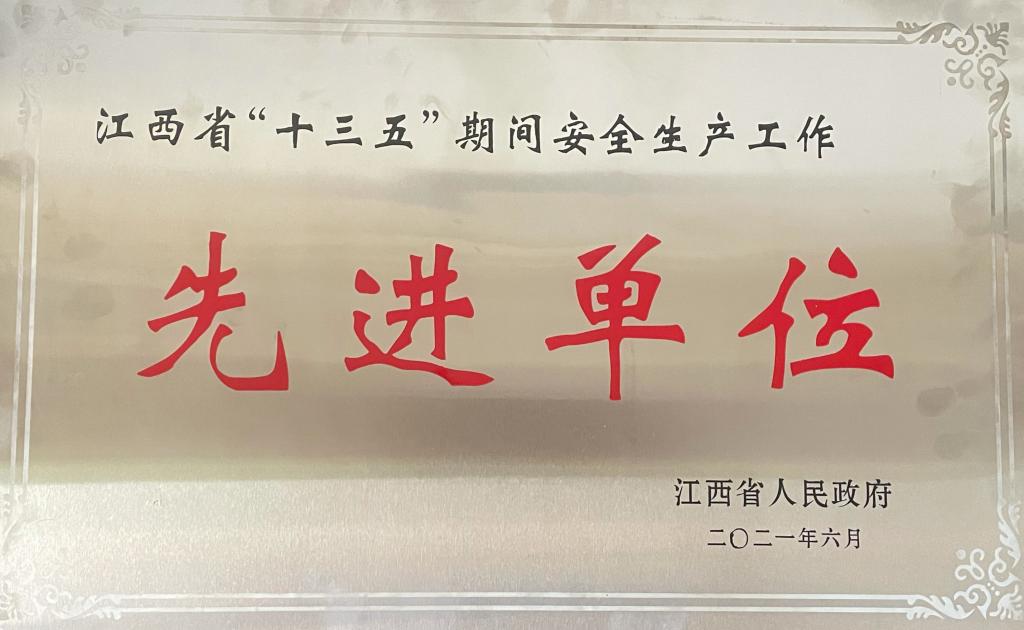 江西省“十三五”期间安全生产工作
先进单位
江西省人民政府
二〇二一年六月